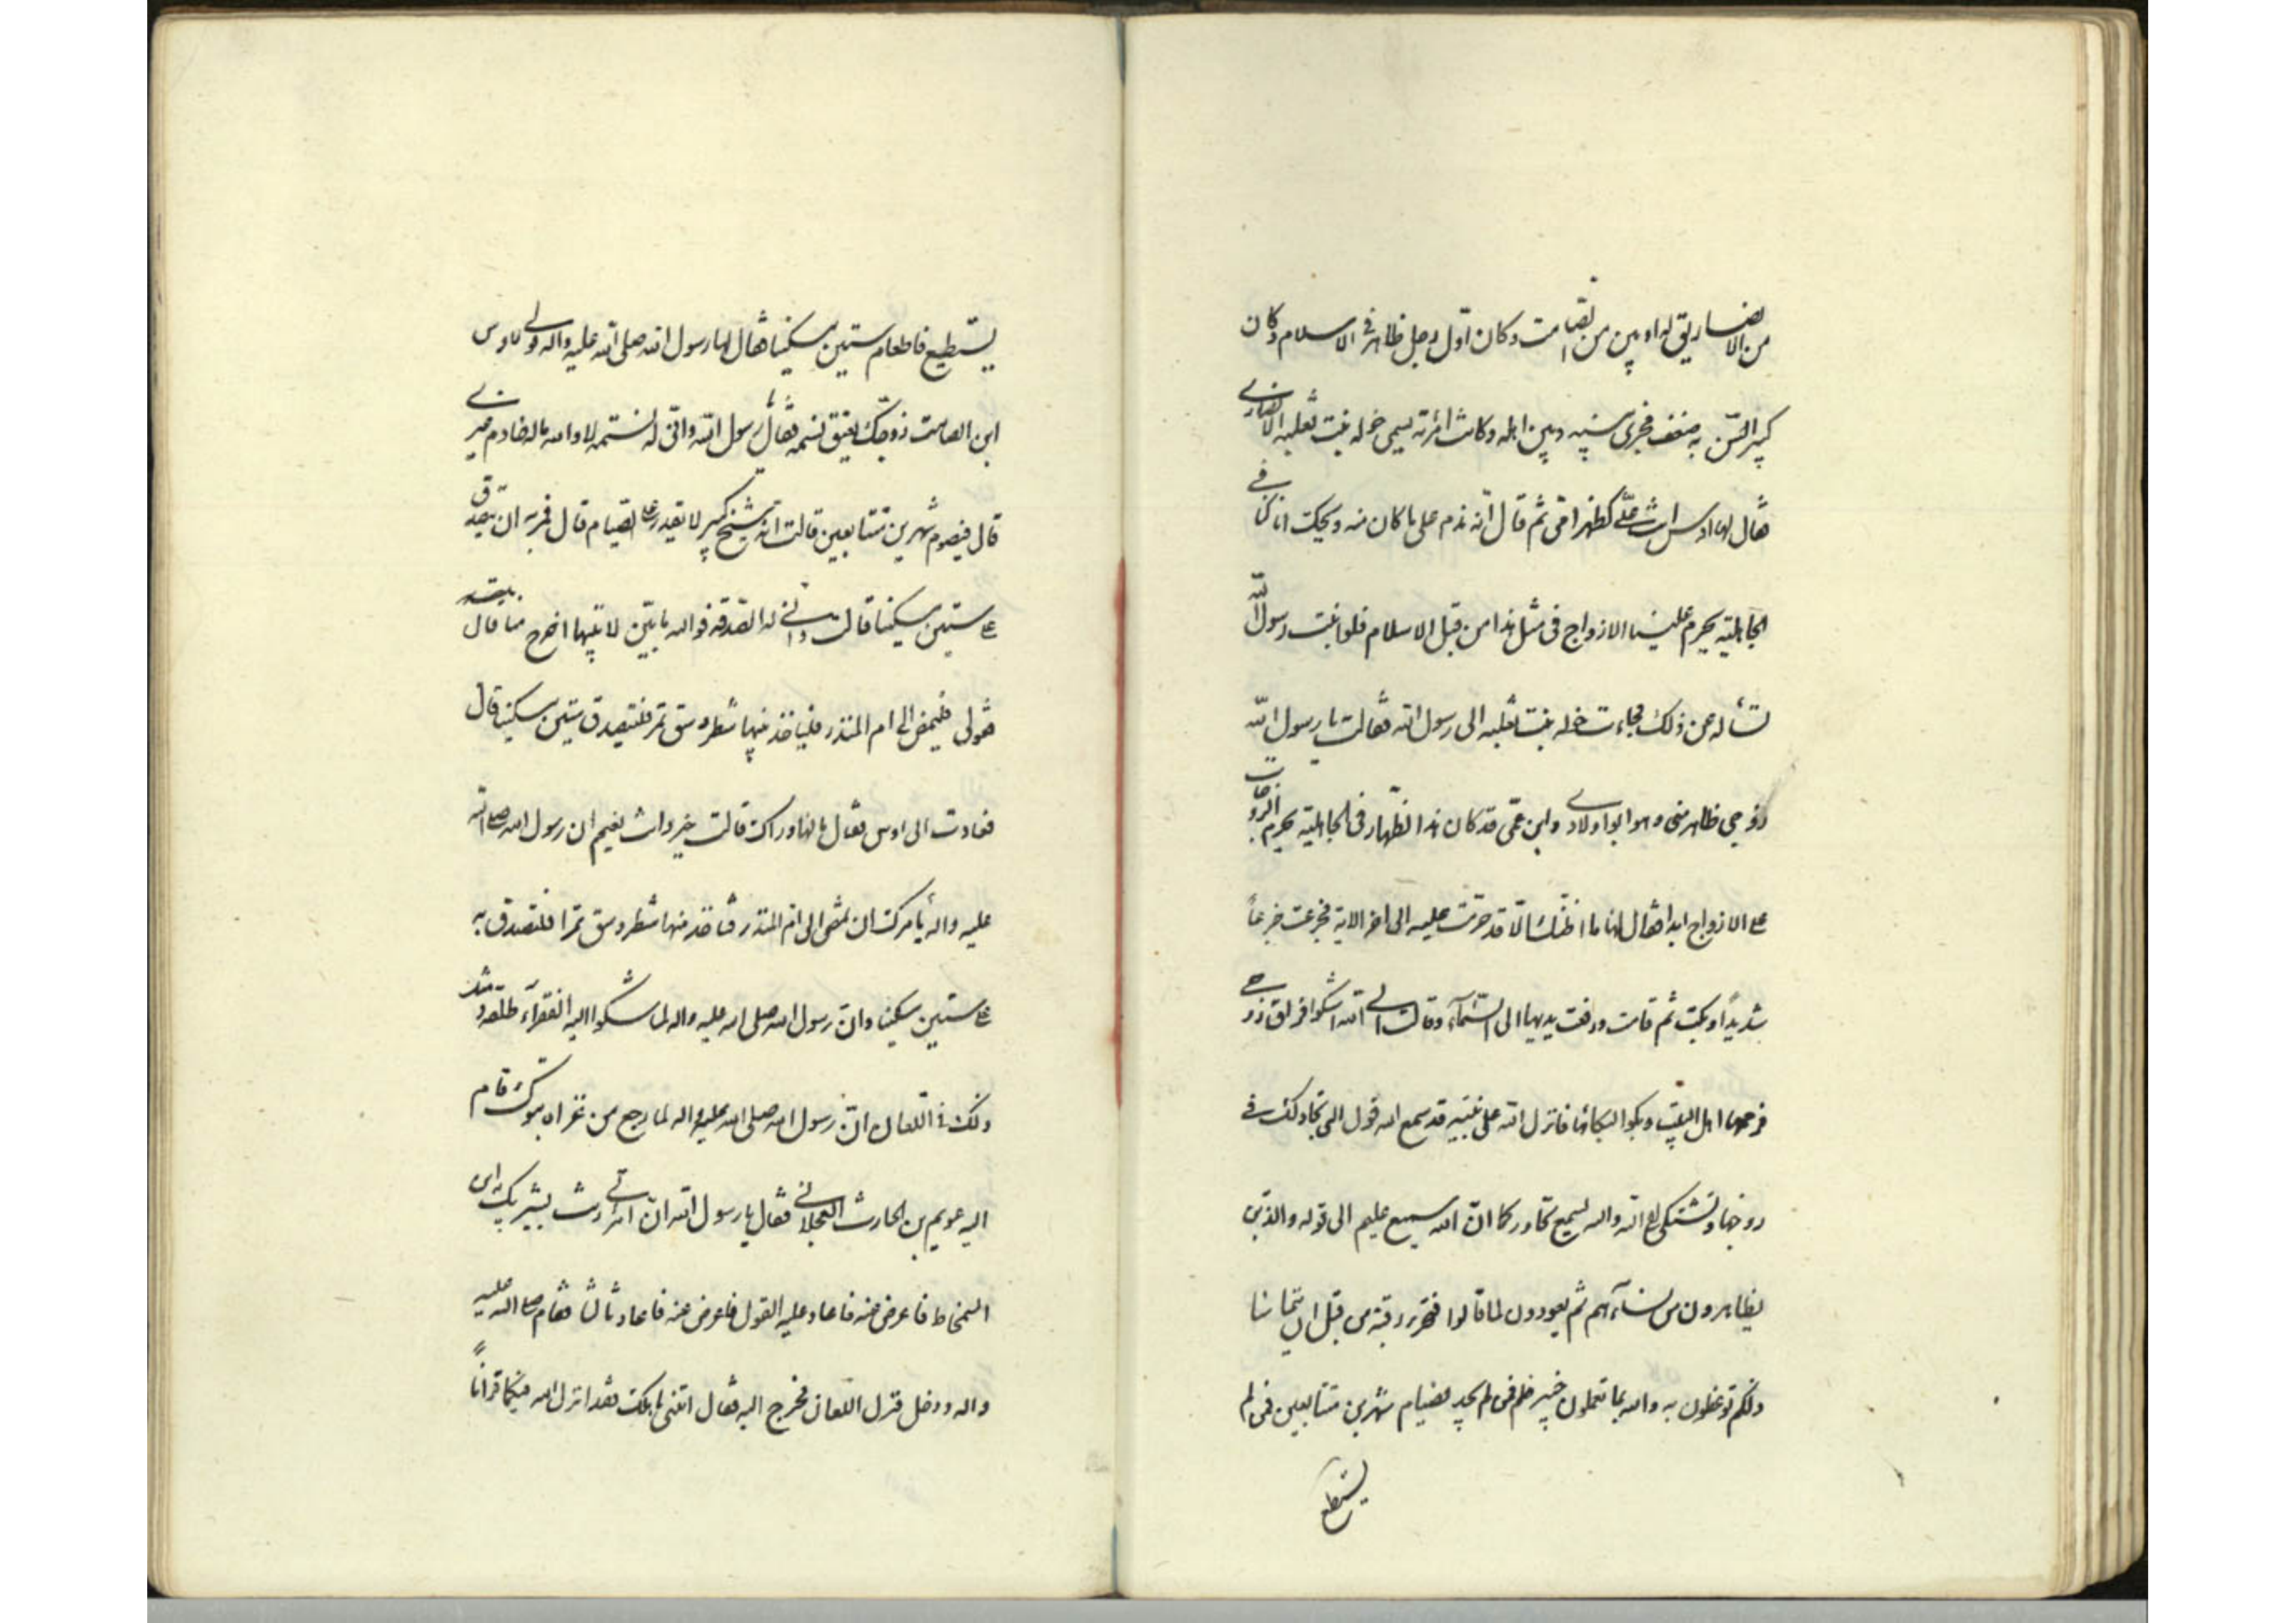 من الانصار يقال له اوس بن الصامت وكان اول رجل ظاهر في الاسلام وكان
كبير السن به ضعف فجرى بينه وبين اهله وكانت امرئته تسمى خوله بنت ثعلبه الانصاري
فقال لها اوس انت علي كظهر امي ثم قال انه ندم على ما كان منه ويحك انا كنا في
الجاهلية يحرم علينا الازواج في مثل هذا من قبل الاسلام فلو اتيت رسول الله
تسأله عن ذلك فجاءت خوله بنت ثعلبه الى رسول الله فقالت يا رسول الله
زوجي ظاهر مني وهو ابو اولادي وابن عمي قد كان هذا الظهار في الجاهلية يحرم الزوجات
على الازواج ابدا فقال لها ما اظنك الا قد حرمت عليه الى اخر الاية فجزعت جزعاً
شديداً وبكت ثم قامت ورفعت يديها الى السماء وقالت الى الله اشكو فراق زوجي
فرحمها اهل البيت وبكوا لبكائها فانزل الله على نبيه قد سمع الله قول التي تجادلك في
زوجها وتشتكي الى الله والله يسمع تحاوركما ان الله سميع عليم الى قوله والذين
يظاهرون من نسآءهم ثم يعودون لما قالوا فتحرير رقبة من قبل ان يتماسا
ذلكم توعظون به والله بما تعملون خبير فمن لم يجد فصيام شهرين متتابعين فمن لم
يستطع
يستطيع فاطعام ستين مسكينا فقال لها رسول الله صلى الله عليه واله قولي لاوس
ابن الصامت زوجك يعتق نسمه فقال يا رسول الله واني له نسمه لا والله ماله خادم غيري
قال فيصوم شهرين متتابعين قالت انه شيخ كبير لا يقدر على الصيام قال فمريه ان يتصدق
على ستين مسكينا قالت واني له الصدقه فوالله ما بين لابتيها احوج منا قال
فقولي فليمض الى ام المنذر فلياخذ منها شطر وسق تمر فليتصدق ستين مسكينا قال
فعادت الى اوس فقال لها ما وراك قالت خير وانت نعيم ان رسول الله صلى الله
عليه واله يأمرك ان تمضي الى ام المنذر فتاخذ منها شطر وسق تمرا فلتصدق به
على ستين مسكينا وان رسول الله صلى الله عليه واله لما شكوا اليه الفقرآء
ذلك في اللعان ان رسول الله صلى الله عليه واله لما رجع من غزاه تبوك قام
اليه عويمر بن الحارث العجلاني فقال يا رسول الله ان امراتي زنت بشريك ابن
السمحاط فاعرض عنه فاعاد عليه القول فاعرض عنه فاعاد ثالثا فقام صلى الله عليه
واله ودخل فنزل اللعان فخرج اليه فقال ائتني باهلك فقد انزل الله فيكما قرانا